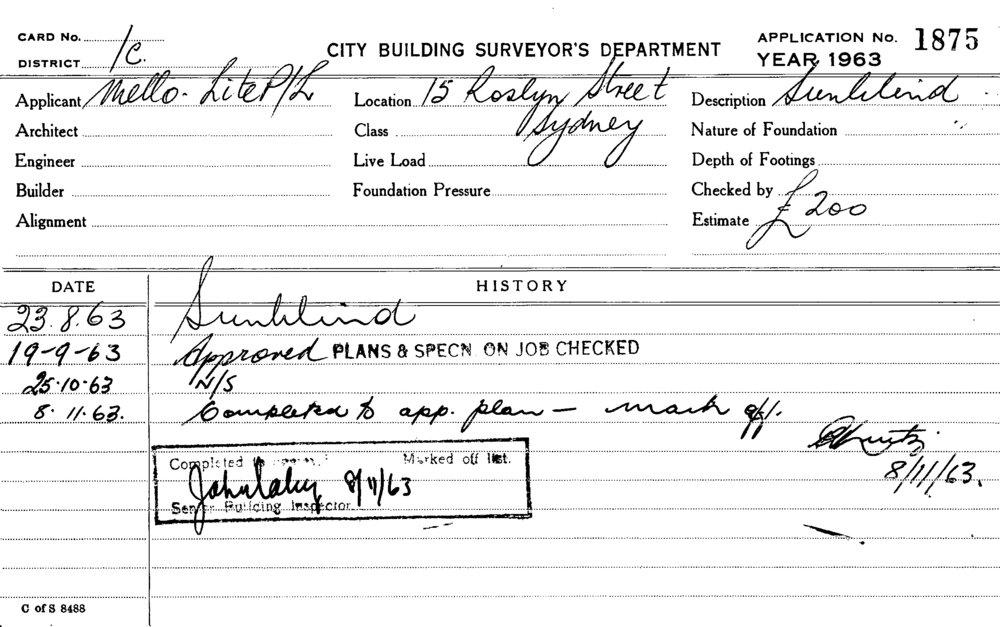 CARD No.
DISTRICT 1c.
CITY BUILDING SURVEYOR'S DEPARTMENT
APPLICATION No. 1875
YEAR 1963
Applicant Mello-Lite P/L Location 15 Roslyn Street Description Sunblind
Architect Class Sydney Nature of Foundation
Engineer Live Load Depth of Footings
Builder Foundation Pressure Checked by
Alignment Estimate £200
DATE HISTORY
23.8.63 Sunblind
19-9-63 Approved PLANS & SPECN. ON JOB CHECKED
25.10.63 N/S
8.11.63. Completed to app. plan — mark off.
8/11/63.
Completed Marked off list.
8/11/63
Senior Building Inspector
C of S 8488